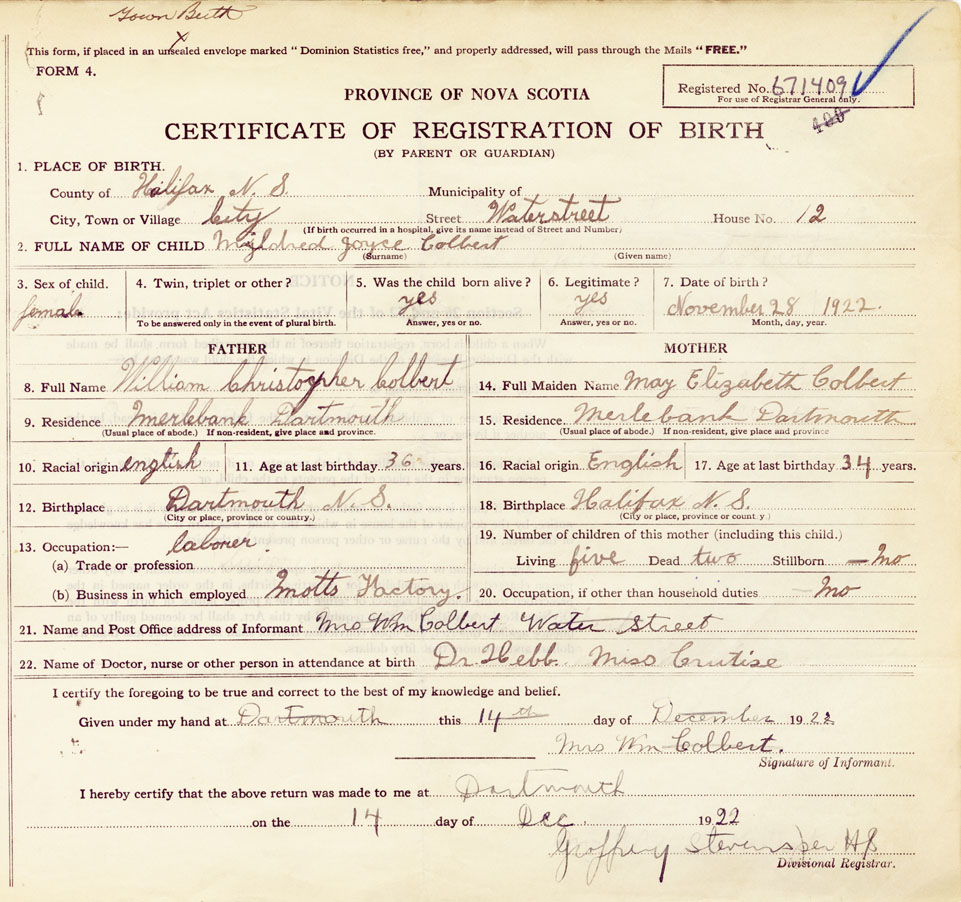 Town Birth
This form, if placed in an unsealed envelope marked "Dominion Statistics free," and properly addressed, will pass through the Mails "FREE."
FORM 4.
Registered No. 671409
For use of Registrar General only.
400
PROVINCE OF NOVA SCOTIA
CERTIFICATE OF REGISTRATION OF BIRTH
(BY PARENT OR GUARDIAN)
1. PLACE OF BIRTH.
County of Halifax N. S. Municipality of
City, Town or Village City Street Waterstreet House No. 12
(If birth occurred in a hospital, give its name instead of Street and Number)
2. FULL NAME OF CHILD Mildred Joyce Colbert
(Surname) (Given name)
3. Sex of child. 4. Twin, triplet or other? 5. Was the child born alive? 6. Legitimate? 7. Date of birth?
female yes yes November 28 1922.
To be answered only in the event of plural birth. Answer, yes or no. Answer, yes or no. Month, day, year.
FATHER MOTHER
8. Full Name William Christopher Colbert 14. Full Maiden Name May Elizabeth Colbert
9. Residence Merlebank Dartmouth 15. Residence Merlebank Dartmouth
(Usual place of abode.) If non-resident, give place and province. (Usual place of abode.) If non-resident, give place and province
10. Racial origin english 11. Age at last birthday 36 years. 16. Racial origin English 17. Age at last birthday 34 years.
12. Birthplace Dartmouth N. S. 18. Birthplace Halifax N. S.
(City or place, province or country.) (City or place, province or country)
13. Occupation:— laborer. 19. Number of children of this mother (including this child.)
(a) Trade or profession Living five Dead two Stillborn — No
(b) Business in which employed Motts Factory. 20. Occupation, if other than household duties No
21. Name and Post Office address of Informant Mrs Wm Colbert Water Street
22. Name of Doctor, nurse or other person in attendance at birth Dr. Hebb. Miss
I certify the foregoing to be true and correct to the best of my knowledge and belief.
Given under my hand at Dartmouth this 14th day of December 1922
Mrs Wm Colbert.
Signature of Informant.
I hereby certify that the above return was made to me at Dartmouth
on the 14 day of Dec 1922
Geoffrey Stevens per HS
Divisional Registrar.